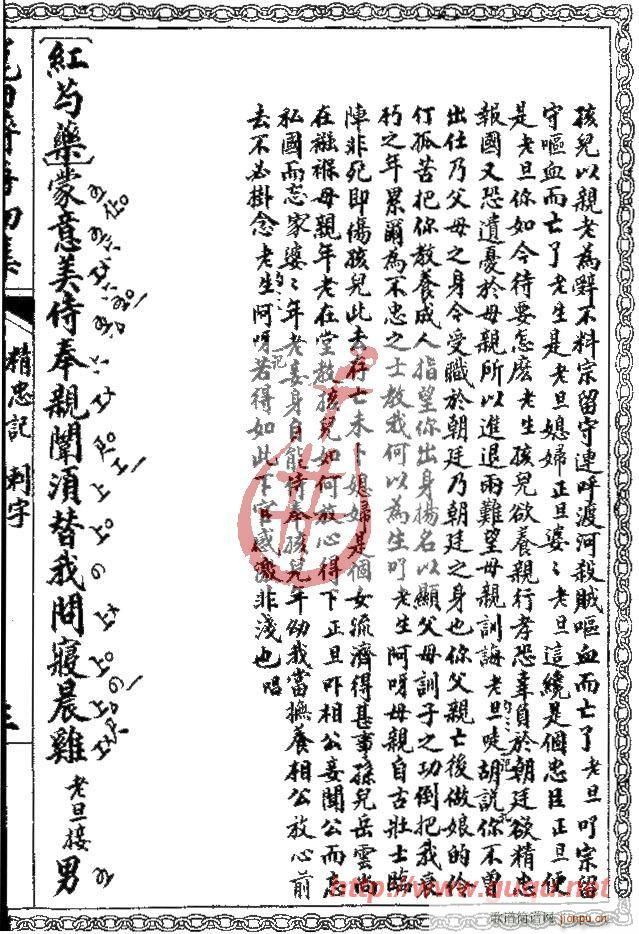 孩兒以親老為辭不料宗留守連呼渡河殺賊嘔血而亡了老旦吖宗留
守嘔血而亡了老生是老旦媳婦正旦婆〻老旦這纔是個忠臣正旦便
是老旦你如今待要怎麽老生孩兒欲養親行孝恐辜負於朝廷欲精忠
報國又恐遺憂於母親所以進退兩難望母親訓誨老旦唗胡說你不曾
出仕乃父母之身今受職於朝廷乃朝廷之身也你父親亡後做娘的伶
仃孤苦把你教養成人指望你出身揚名以顯父母訓子之功倒把我衰
朽之年累爾為不忠之士教我何以為生吖老生阿呀母親自古壯士臨
陣非死即傷孩兒此去存亡未卜媳婦是個女流濟得甚事孫兒岳雲尚
在襁褓母親年老在堂教孩兒如何放心得下正旦吓相公妾聞公而忘
私國而忘家婆〻年老妾身自能侍奉孩兒年幼我當撫養相公放心前
去不必掛念老生阿呀若得如此下官感激非淺也唱
紅芍藥蒙意美侍奉親闈須替我問寢晨雞老旦接男
精忠記 刺字
http://www.ququ.net
歌譜簡譜網
jianpu.cn